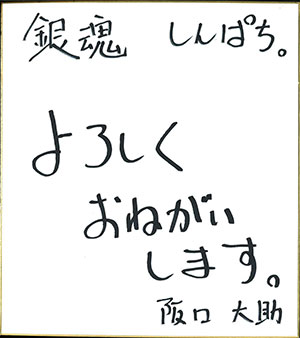 銀魂 しんぱち。
よろしく
おねがい
します。
阪口 大助